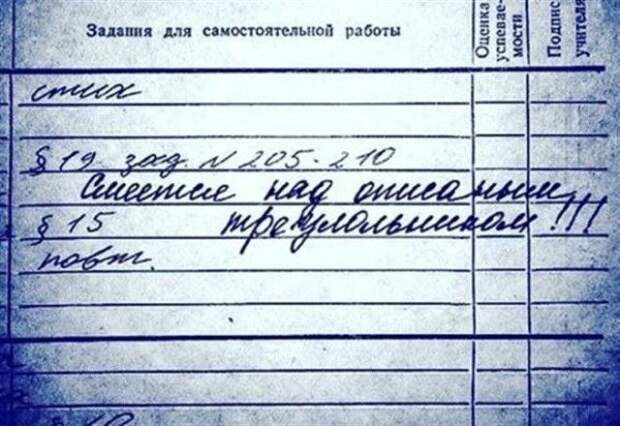 Задания для самостоятельной работы
Оценка
успевае-
мости
Подпис
учителя
стих
§ 19 зад. N 205-210
Смеется над описаным
§ 15 треугольником!!!
повт.